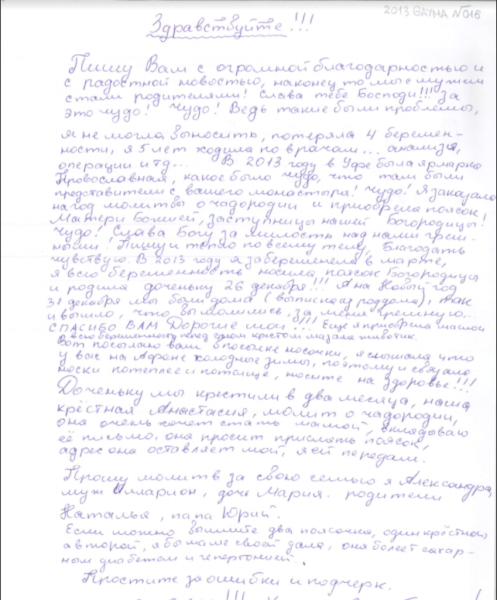 2013 ВАТНА №016
Здравствуйте!!!
Пишу Вам с огромной благодарностью и
с радостной новостью, наконец то мы с мужем
стали родителями! Слава тебе Господи!!! За
это чудо! Чудо! Ведь такие были проблемы,
я не могла выносить, потеряла 4 беремен-
ности, я 5 лет ходила по врачам... анализы,
операции и т.д... В 2013 году в Уфе была ярмарка
Провославная, какое было чудо, что там были
представители с вашего монастыря! Чудо! Я заказала
на год молитвы о чадородии и приобрела поясок!
Матери Божией, заступницы нашей Богородицы!
Чудо! Слава Богу за милость над нами греш-
ными! Пишу и тепло по всему телу, благодать
чувствую. В 2013 году я забеременела в марте,
я всю беременность носила поясок Богородицы
и родила доченьку 26 декабря!!! А на Новый год
31 декабря мы были дома (выписка из роддома), так
и вышло, что вы молились за меня грешную...
СПАСИБО ВАМ Дорогие мои!!! Ещё я приобрела
и всю беременность перед сном крестом мазала животик.
Вот посылаю вам носочки, я слышала что
у вас на Афоне холодные зимы, поэтому и связала
носки потеплее и потолще, носите на здоровье!!!
Доченьку мы крестили в два месяца, наша
крёстная Анастасия, молит о чадородии,
она очень хочет стать мамой, вкладываю
её письмо, она просит прислать поясок,
адрес она оставляет мой, я ей передам.
Прошу молитв за свою семью я Александра,
муж Илларион, дочь Мария. родители
Наталья, папа Юрий.
Если можно вышлите два поясочка, один крёстной,
а второй, я бы маме своей дала, она болеет сахар-
ным диабетом и гипертонией.
Простите за ошибки и подчерк.